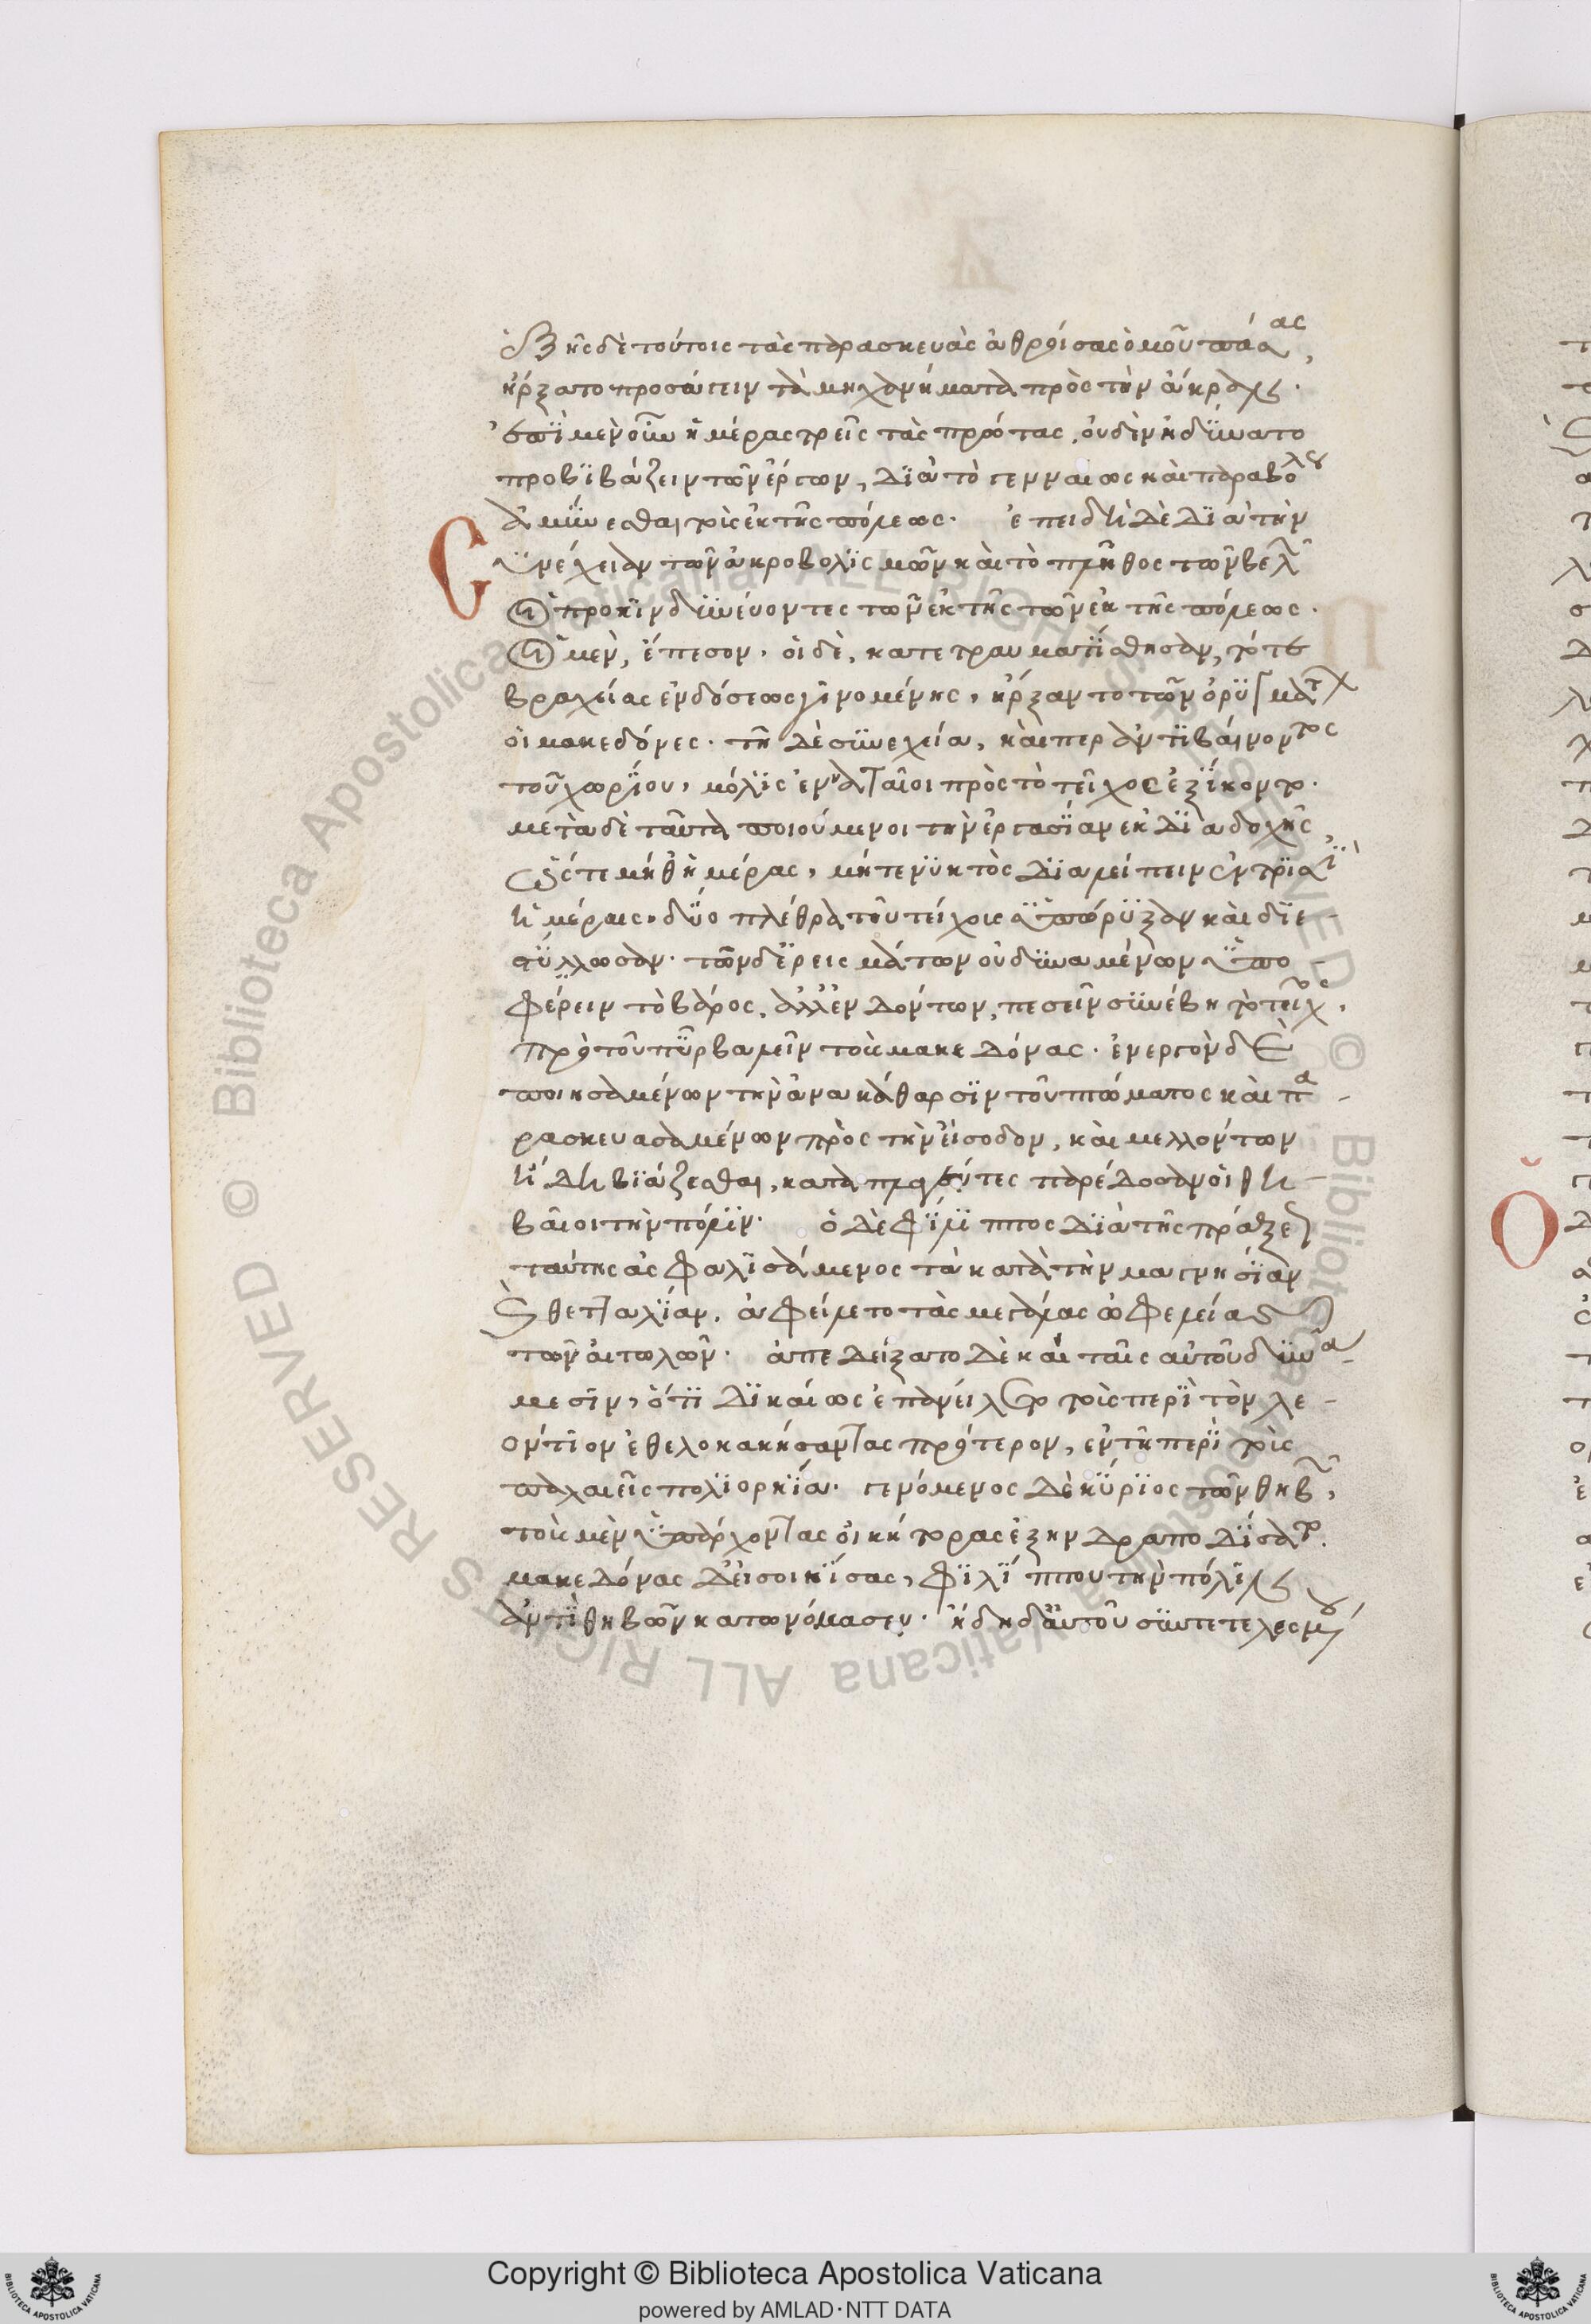 ἑξῆς δὲ τούτοις τὰς παρασκευὰς ἀθροίσας ὁμοῦ πάσας,
ἤρξατο προσάγειν τὰ μηχανήματα πρὸς τὴν ἄκραν.
ἐπὶ μὲν οὖν ἡμέρας τρεῖς τὰς πρώτας, οὐδὲν ἠδύνατο
προβιβάζειν τῶν ἔργων, διὰ τὸ γενναίως καὶ παραβόλως
ἀμύνεσθαι τοὺς ἐκ τῆς πόλεως. ἐπειδὴ δὲ διὰ τὴν
συνέχειαν τῶν ἀκροβολισμῶν καὶ τὸ πλῆθος τῶν βελῶν
οἱ προκινδυνεύοντες τῶν ἐκ τῆς τῶν ἐκ τῆς πόλεως.
οἱ μὲν, ἔπεσον. οἱ δὲ, κατετραυματίσθησαν, τότε
βραχείας ἐνδόσεως γινομένης, ἤρξαντο τῶν ὀρυγμάτων
οἱ μακεδόνες. τῆ δὲ συνεχεία, καίπερ ἀντιβαίνοντος
τοῦ χωρίου, μόλις ἐνναταῖοι πρὸς τὸ τεῖχος ἐξίκοντο.
μετὰ δὲ ταῦτα ποιούμενοι τὴν ἐργασίαν ἐκ διαδοχῆς,
ὥστε μήθ ἡμέρας, μήτε νυκτὸς διαλείπειν ἐν τρισὶ
ἡμέραις, δύο πλέθρα τοῦ τείχους ὑπώρυξαν καὶ διε-
στύλωσαν. τῶν δ ἐρεισμάτων οὐ δυναμένων ὑπο-
φέρειν τὸ βάρος, ἀλλ ἐνδόντων, πεσεῖν συνέβη τὸ τεῖχος,
πρὸ τοῦ πῦρ βαλεῖν τοὺς μακεδόνας. ἐνεργὸν δὲ
ποιησαμένων τὴν ἀνακάθαρσιν τοῦ πτώματος καὶ πα-
ρασκευασαμένων πρὸς τὴν εἴσοδον, καὶ μελλόντων
ἤδη βιάζεσθαι, καταπλαγέντες παρέδοσαν οἱ θη-
βαῖοι τὴν πόλιν. ὁ δὲ φίλιππος διὰ τῆς πράξεως
ταύτης ἀσφαλισάμενος τὰ κατὰ τὴν μαγνησίαν
καὶ θετταλίαν, ἀφείλετο τὰς μεγάλας ὠφελείας
τῶν αἰτωλῶν. ἀπεδείξατο δὲ καὶ ταῖς αὑτοῦ δυνά-
μεσιν, ὅτι δικαίως ἐπανείλετο τοὺς περὶ τὸν λε-
όντιον ἐθελοκακήσαντας πρότερον, ἐν τῆ περὶ τοὺς
παλαιεῖς πολιορκία. γενόμενος δὲ κύριος τῶν θηβῶν,
τοὺς μὲν ὑπάρχοντας οἰκήτορας ἐξηνδραποδίσατο.
μακεδόνας δ εἰσοικίσας, φιλίππου τὴν πόλιν
ἀντὶ θηβῶν κατωνόμασεν. ἤδη δ αὐτοῦ συντετελεσμένου